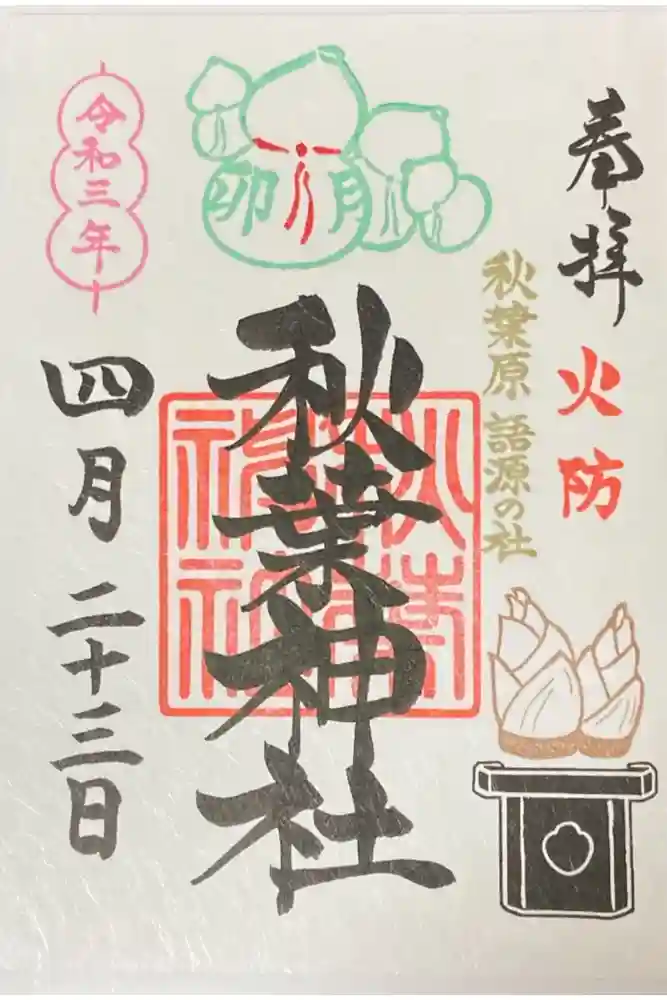 奉拝
火防
秋葉原 語源の社
卯月
秋葉神社
秋葉
神社
令和三年
四月二十三日